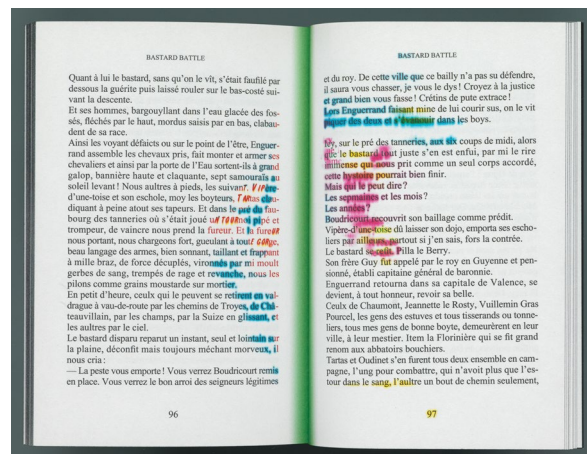 BASTARD BATTLE
Quant à lui le bastard, sans qu'on le vît, s'était faufilé par
dessous la guérite puis laissé rouler sur le bas-costé sui-
vant la descente.
Et ses hommes, bargouyllant dans l'eau glacée des fos-
sés, fléchés par le haut, mordus saisis par en bas, clabau-
dent de sa race.
Ainsi les voyant défaicts ou sur le point de l'être, Enguer-
rand assemble les chevaux pris, fait monter et armer ses
chevaliers et ainsi par la porte de l'Eau sortent-ils à grand
galop, bannière haute et claquante, sept samouraïs au
soleil levant ! Nous aultres à pieds, les suivant. Vipère-
d'une-toise et son eschole, moy les boyteurs, Tartas clau-
diquant à peine atout ses tapeurs. Et dans le pré du fau-
bourg des tanneries où s'était joué un tournoi pipé et
trompeur, de vaincre nous prend la fureur. Et la fureur
nous portant, nous chargeons fort, gueulant à tout gorge,
beau langage des armes, bien sonnant, taillant et frappant
à mille braz, de force décuplés, vironnés par mi moult
gerbes de sang, trempés de rage et revanche, nous les
pilons comme grains moustarde sur mortier.
En petit d'heure, ceulx qui le peuvent se retirent en val-
drague à vau-de-route par les chemins de Troyes, de Châ-
teauvillain, par les champs, par la Suize en glissant, et
les aultres par le ciel.
Le bastard disparu reparut un instant, seul et lointain sur
la plaine, déconfit mais toujours méchant morveux, il
nous cria :
— La peste vous emporte ! Vous verrez Boudricourt remis
en place. Vous verrez le bon arroi des seigneurs légitimes
96
BASTARD BATTLE
et du roy. De cette ville que ce bailly n'a pas su défendre,
il saura vous chasser, je vous le dys ! Croyez à la justice
et grand bien vous fasse ! Crétins de pute extrace !
Lors Enguerrand faisant mine de lui courir sus, on le vit
piquer des deux et s'évanouir dans les boys.
Icy, sur le pré des tanneries, aux six coups de midi, alors
que le bastard tout juste s'en est enfui, par mi le rire
qui nous prit comme un seul corps accordé,
cette hystoire pourrait bien finir.
Mais qui le peut dire ?
Les sepmaines et les mois ?
Les années ?
Boudricourt recouvrit son bailliage comme prédit.
Vipère-d'une-toise dû laisser son dojo, emporta ses escho-
liers par ailleurs, partout si j'en sais, fors la contrée.
Le bastard se Pilla le Berry.
Son frère Guy fut appelé par le roy en Guyenne et pen-
sionné, établi capitaine général de baronnie.
Enguerrand retourna dans sa capitale de Valence, se
devient, à tout honneur, revoir sa belle.
Ceulx de Chaumont, Jeannette le Rosty, Vuillemin Gras
Pourcel, les gens des estuves et tous tisserands ou tonne-
liers, tous mes gens de bonne boyte, demeurèrent en leur
ville, à leur mestier. Item la Florinière qui se fit grand
renom aux abbatoirs bouchiers.
Tartas et Oudinet s'en furent tous deux ensemble en cam-
pagne, l'ung pour combattre, qui n'avait plus que l'es-
tour dans le sang, l'aultre un bout de chemin seulement,
97